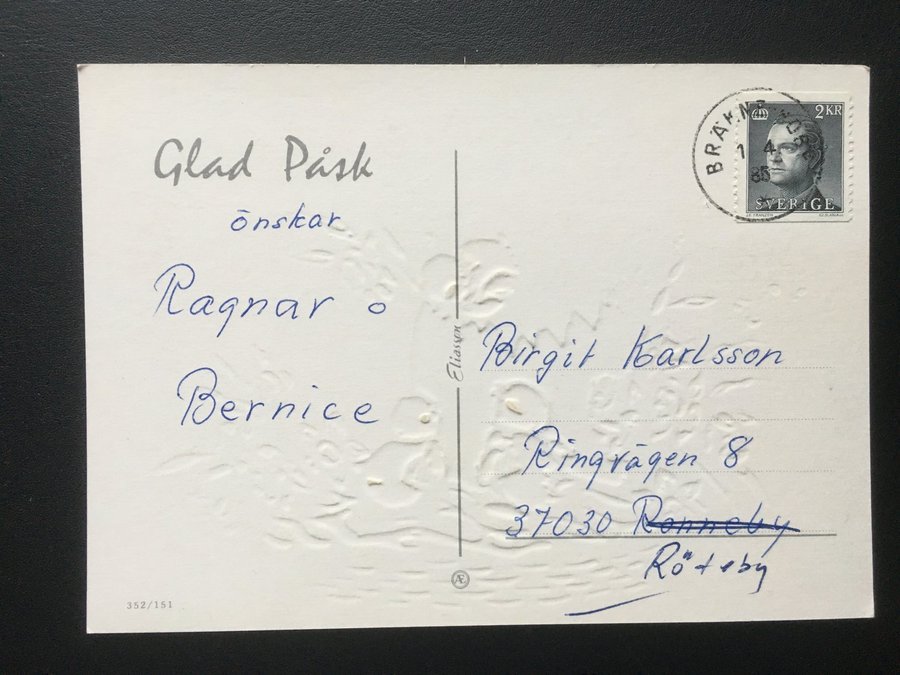 Glad Påsk
önskar
Ragnar o
Bernice
352/151
Eliasson
Æ
BRÄKNE-HOBY
1 4
2 KR
SVERIGE
Birgit Karlsson
Ringvägen 8
37030 Ronneby
Röteby